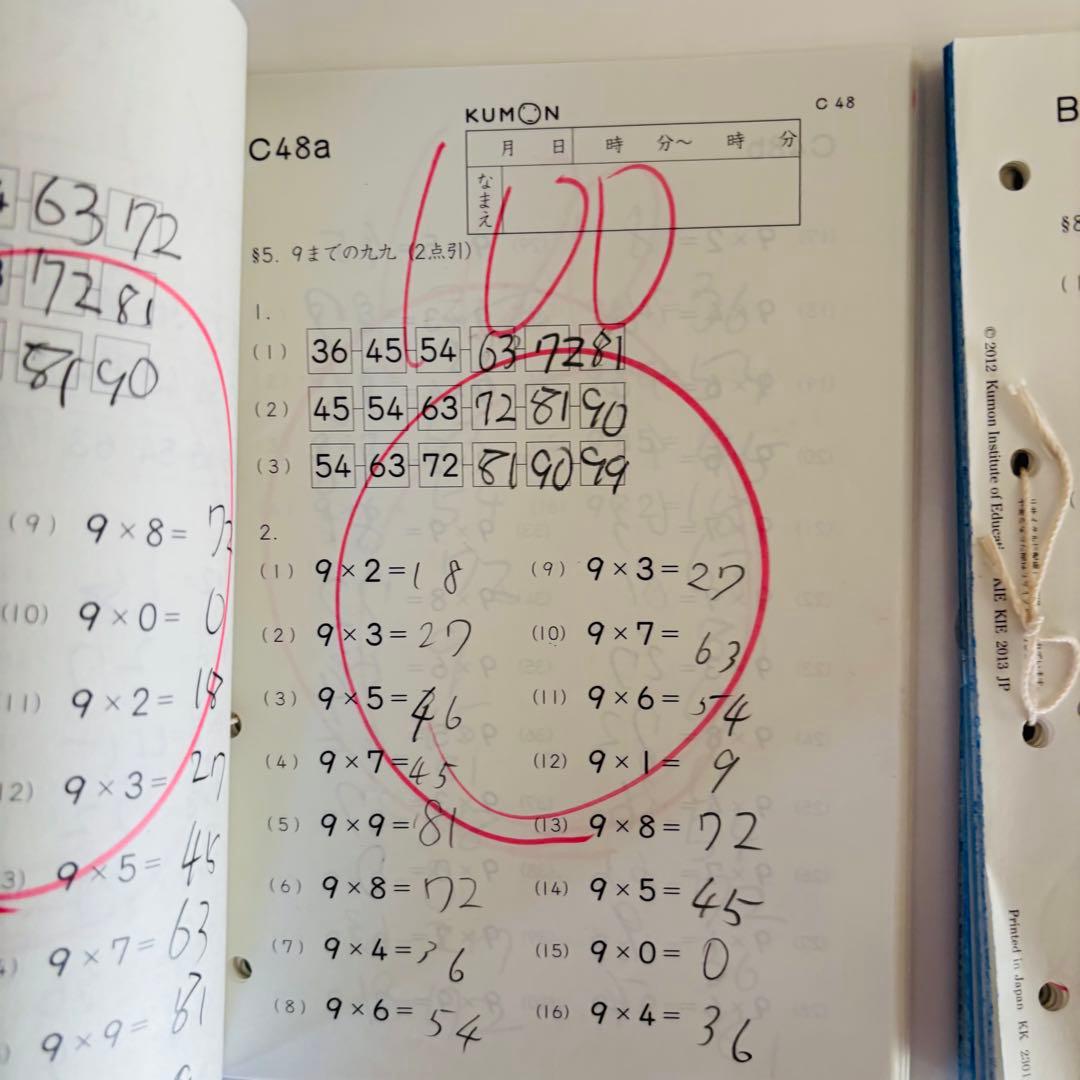 63 72
72 81
81 90
(9) 9×8= 72
(10) 9×0= 0
11) 9×2= 18
12) 9×3= 27
3) 9×5= 45
9×7= 63
9×9= 81
KUMON
C 48
C48a
月 日 時 分～ 時 分
なまえ
100
§5. 9までの九九 (2点引)
1.
(1) 36 45 54 63 72 81
(2) 45 54 63 72 81 90
(3) 54 63 72 81 90 99
2.
(1) 9×2= 18 (9) 9×3= 27
(2) 9×3= 27 (10) 9×7= 63
(3) 9×5= 46 (11) 9×6= 54
(4) 9×7= 45 (12) 9×1= 9
(5) 9×9= 81 (13) 9×8= 72
(6) 9×8= 72 (14) 9×5= 45
(7) 9×4= 36 (15) 9×0= 0
(8) 9×6= 54 (16) 9×4= 36
B
§8
(1
© 2012 Kumon Institute of Educat
KIE KIE 2013 JP
Printed in Japan KK 2301